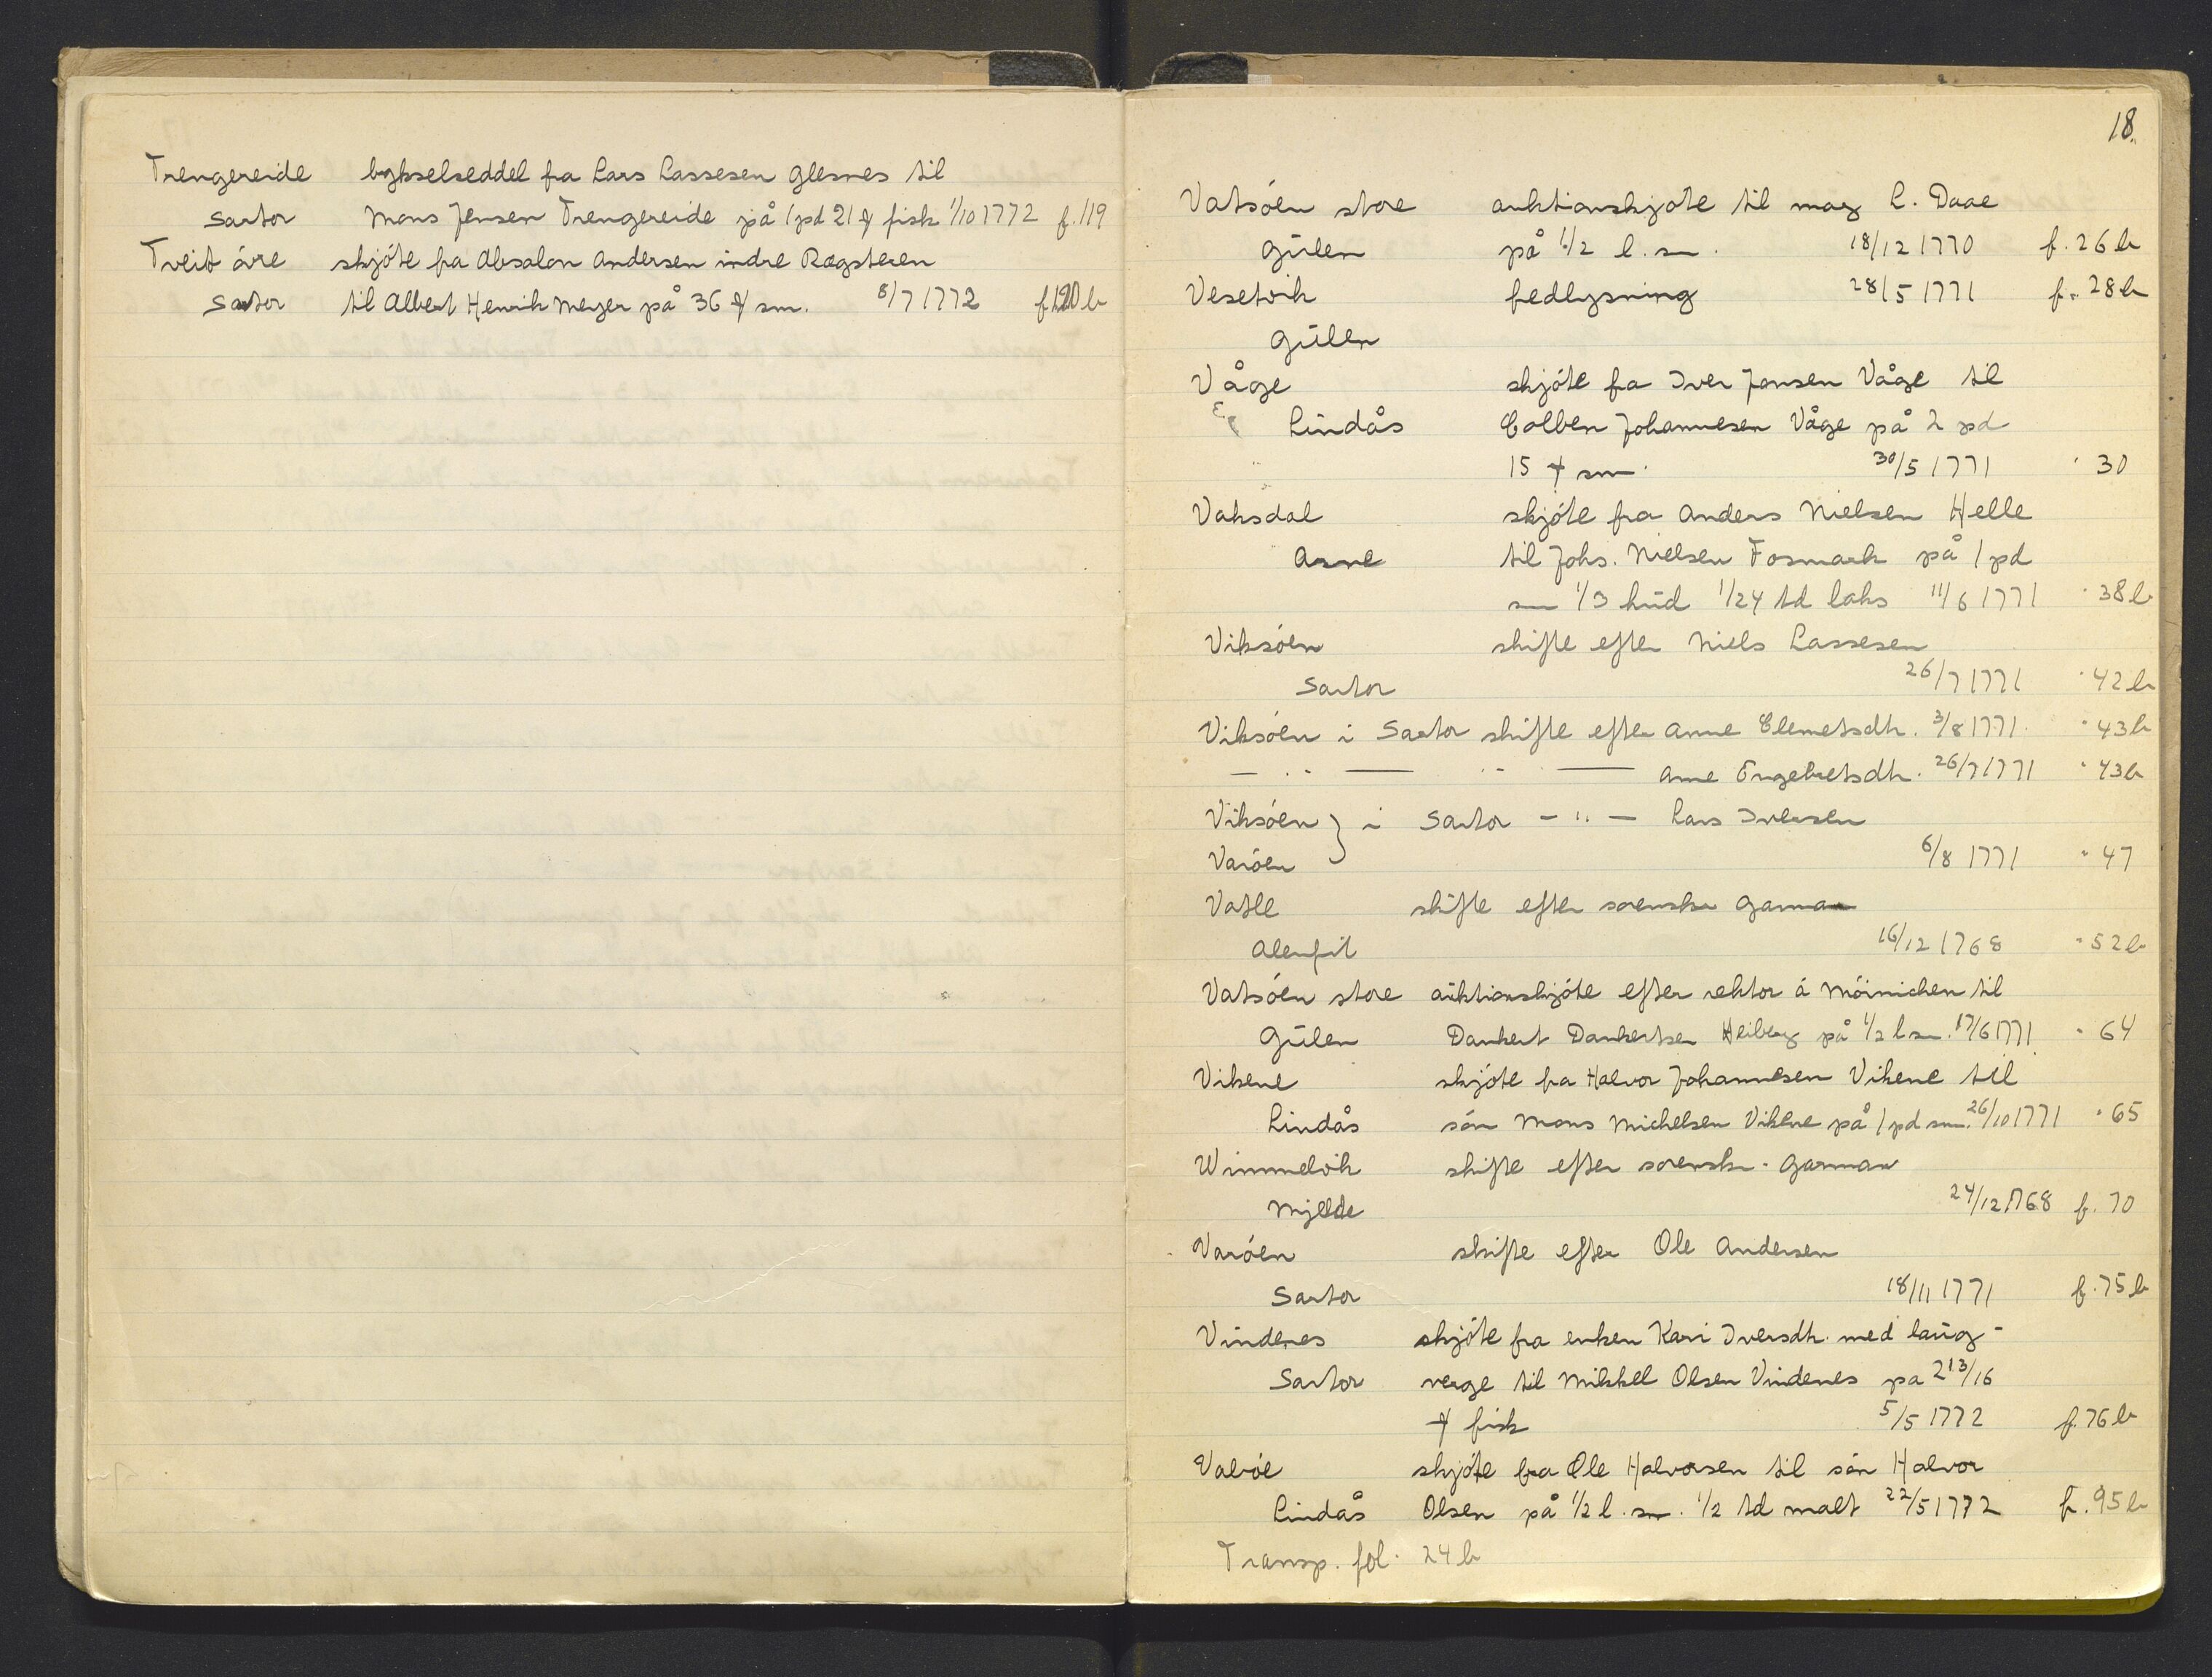 Trengereide bykselseddel fra Lars Lassesen Glesnes til
Sartor Mons Jensen Trengereide på 1 pd 21 ℔ fisk 1/10 1772 f. 119
Tveit óvre skjóte fra Absalon Andersen indre Rægsteren
Sartor til Albert Henrik Meyer på 36 ℔ sm. 8/7 1772 f 120 b
18.
Vatsóen store auktionskjóte til mag L. Daae
Gŭlen på 1/2 l. sm. 18/12 1770 f. 26 b
Vesetvik fedlysning 28/5 1771 f. 28 b
Gŭlen
Våge skjóte fra Iver Jonsen Våge til
Lindås Colben Johannesen Våge på 2 pd
15 ℔ sm. 30/5 1771 " 30
Vaksdal skjóte fra Anders Nielsen Helle
Arne til Johs. Nielsen Fosmark på 1 pd
sm 1/3 hŭd 1/24 td laks 11/6 1771 " 38 b
Viksóen skifte efter Niels Lassesen
Sartor 26/7 1771 " 42 b
Viksóen i Sartor skifte efter Anne Clemetsdtr. 3/8 1771 " 43 b
— " — " — Anne Engebretsdtr. 26/7 1771 " 43 b
Viksóen } i Sartor — " — Lars Iversen
Varóen 6/8 1771 " 47
Vatle skifte efter sorenskr Garman
Alenfit 16/12 1768 " 52 b
Vatsóen store aŭktionskjóte efter rektor á Móinichen til
Gŭlen Dankert Dankertsen Heiberg på 1/2 l sm. 17/6 1771 " 64
Vikene skjóte fra Halvor Johannesen Vikene til
Lindås són Mons Michelsen Vikene på 1 pd sm. 26/10 1771 " 65
Wimmelvik skifte efter sorenskr. Garman
Mjelde 24/12 1768 f. 70
Varóen skifte efter Ole Andersen
Sartor 18/11 1771 f. 75 b
Vindenes skjóte fra enken Kari Iversdtr. med laŭg-
Sartor verge til Mikkel Olsen Vindenes pa 2 13/16
℔ fisk 5/5 1772 f. 76 b
Valvóe skjóte fra Ole Halvorsen til són Halvor
Lindås Olsen på 1/2 l. sm. 1/2 td malt 22/5 1772 f. 95 b
Transp. fol. 24 b